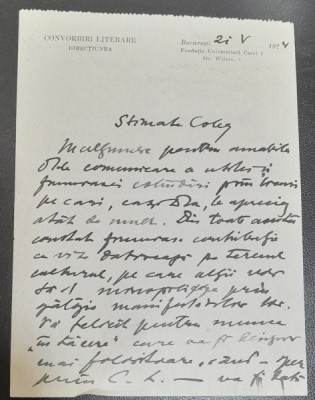 CONVORBIRI LITERARE
DIRECȚIUNEA
București 21 V 1924
Fundația Universitară Carol I
Str. Wilson, 1
Stimate Coleg
Mulțumesc pentru amabila
comunicare a utilei și
frumoasei
pe cari, ca și Dta, le apreciez
atât de mult. Din toate acestea
constat frumoasa contribuție
ce vi se datorește pe terenul
cultural, pe care alții vor
să-l monopolizeze prin
manifestărilor lor.
Vă felicit pentru munca
"în tăcere" care va fi desigur
mai folositoare, când a
prin C. L. — va fi